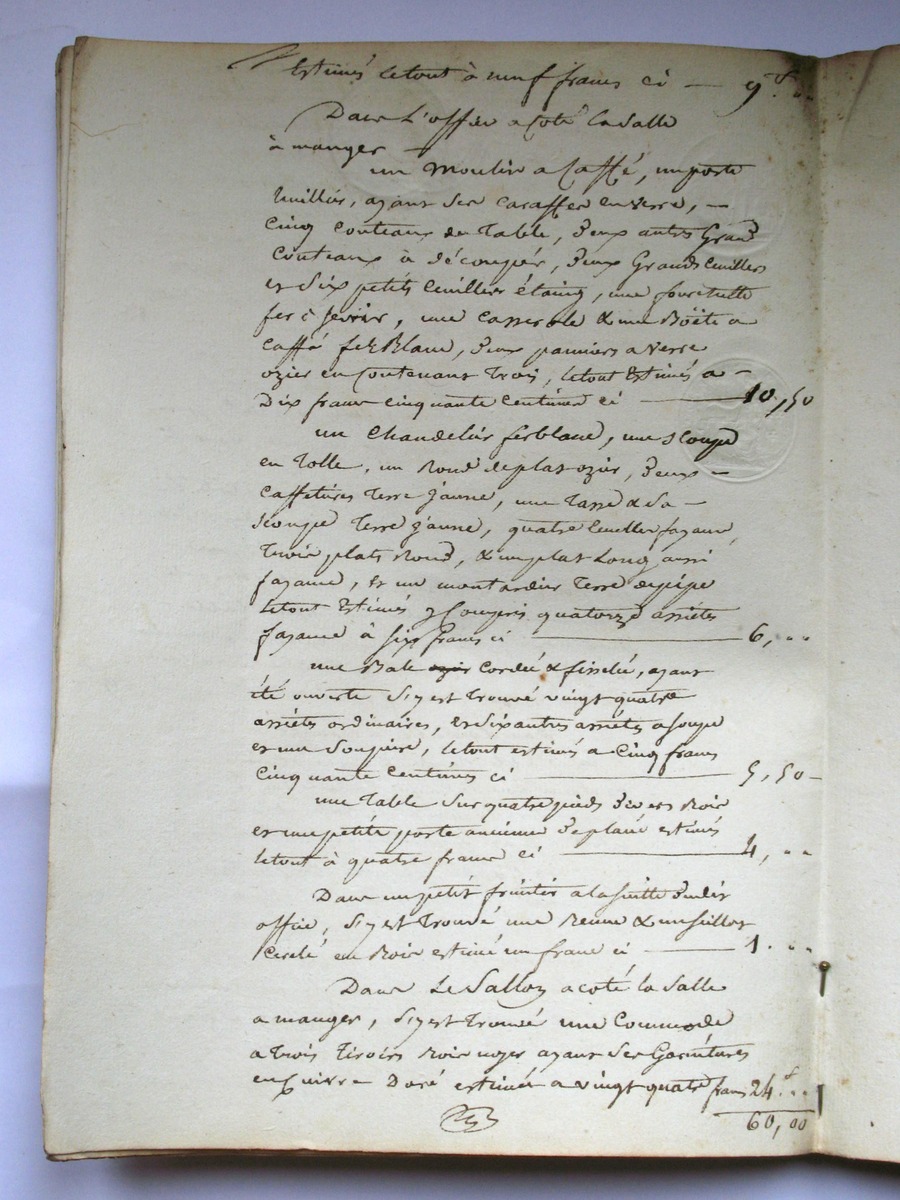 Estimés le tout à neuf francs ci — 9f..
Dans L'office a Coté la Salle
à manger —
un Moulin a Caffé, un porte
huillier, ayant ses caraffes en verre, —
Cinq Couteaux de Table, deux autres Grand
Couteaux à découpér, deux Grands Cuilliers
et Six petits Cuilliers étaing, une fourchette
fer, une Casserole & une Boëte a
Caffé ferBlanc, deux panniers a verre
ozier en Contenant Trois, le tout Estimés a —
Dix franc cinquante Centimes ci — 10,50
un Chandelier ferblanc, une scoupe
en Tolle, un Rond de plat ozier, deux —
Caffetières Terre jaune, une Tasse & Sa —
scoupe Terre jaune, quatre Cuillier fayance,
Trois plats Rond, & un plat Long aussi
fayance, Et un moutardier Terre de pipe
le tout Estimés y Compris quatorze assiètes
fayance à Six francs ci — 6,..
une Bale Cordée & fisselée, ayant
été ouverte S'y est Trouvé vingt quatre
assiétes ordinaires, et Six autres assiétes a Soupe
et une Soupière, le tout estimés a Cinq francs
Cinquante Centimes ci — 5,50 —
une Table Sur quatre pieds divers Bois
et une petite porte ancienne estimés
le tout à quatre franc ci — 4,..
Dans un petit fruitier a la Suitte dudit
office, S'y est Trouvé une Benne & un Seillot
Cerclé en Bois estimé un franc ci — 1...
Dans Le Sallon a coté la Salle
a manger, S'y est Trouvé une Commode
a Trois Tiroirs Bois noyer ayant Ses Garnitures
en Cuivre Doré estimée a vingt quatre francs 24f..
60,00